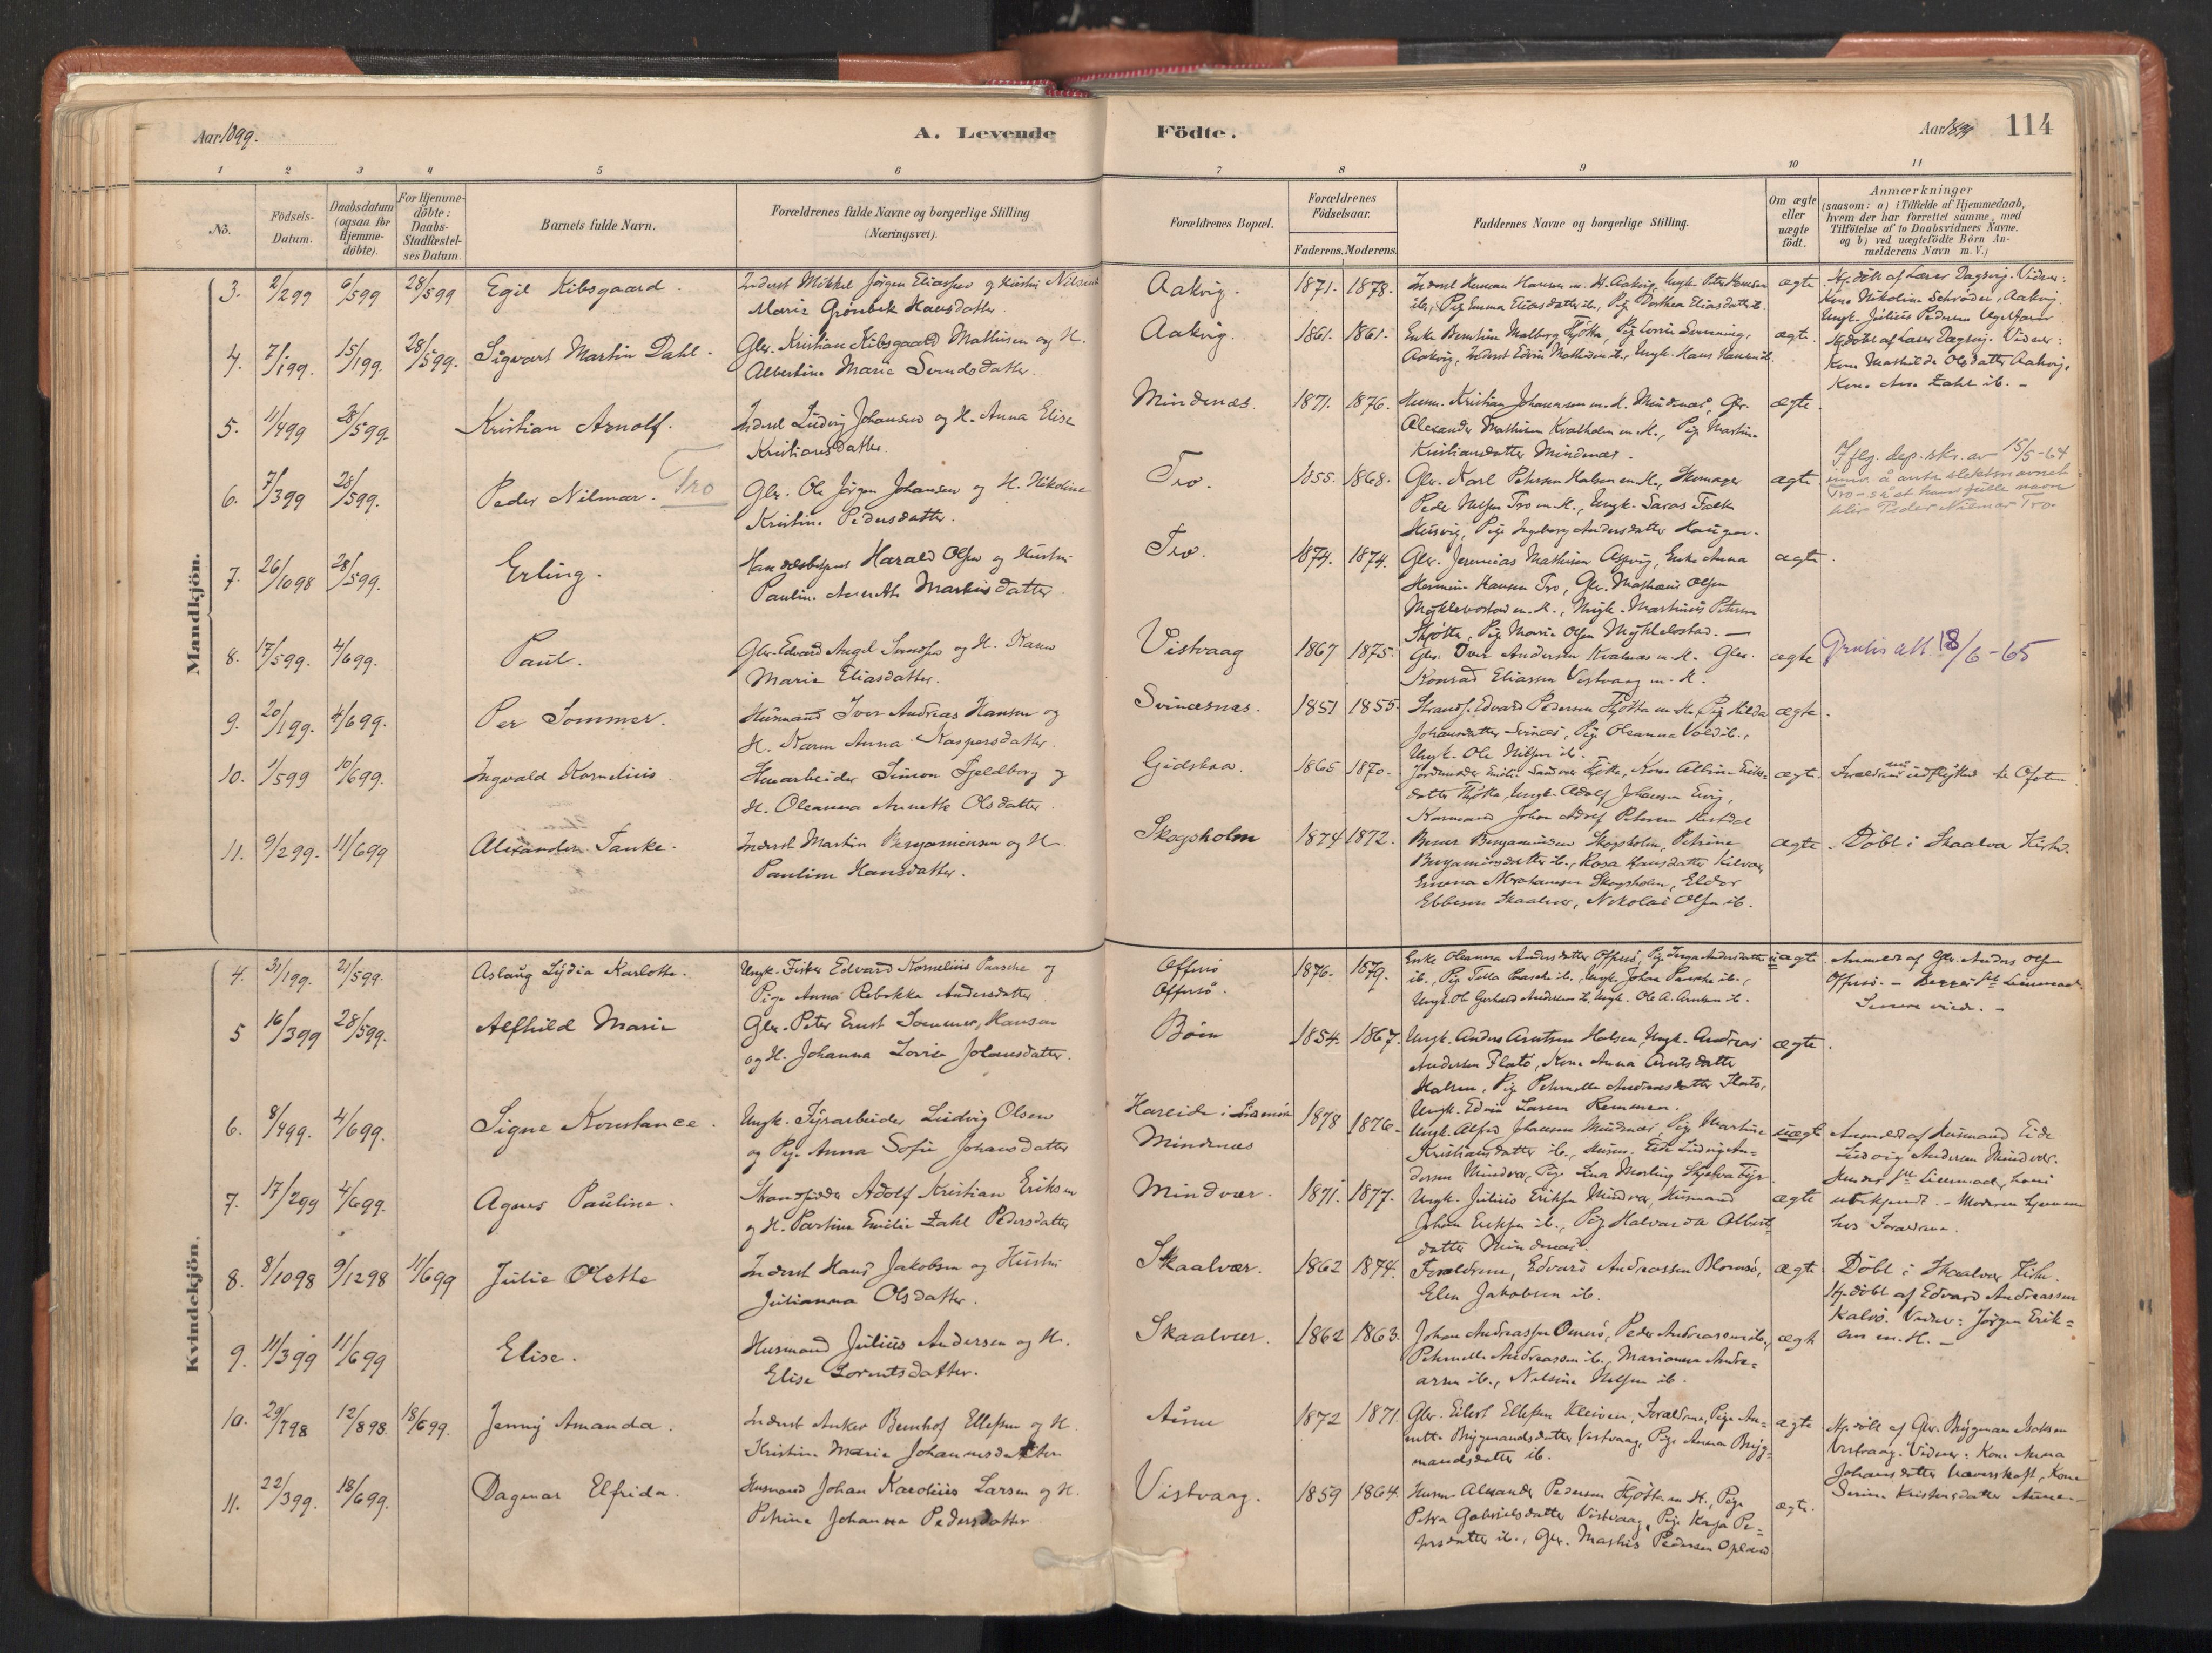 Aar 1899.
A. Levende
Födte.
Aar 1899
114
1 2 3 4 5 6 7 8 9 10 11
No.
Födsels-
Datum.
Daabsdatum
(ogsaa for
Hjemme-
döbte).
For Hjemme-
döbte:
Daabs-
Stadfæstel-
ses Datum.
Barnets fulde Navn.
Forældrenes fulde Navne og borgerlige Stilling
(Næringsvei).
Forældrenes Bopæl.
Forældrenes
Födselsaar.
Faderens. Moderens.
Faddernes Navne og borgerlige Stilling.
Om ægte
eller
uægte
födt.
Anmærkninger
(saasom: a) i Tilfælde af Hjemmedaab,
hvem der har forrettet samme, med
Tilföielse af to Daabsvidners Navne.
og b) ved uægtefödte Börn An-
melderens Navn m. V.)
Mandkjön.
3. 2/2 99 6/5 99 28/5 99 Egil Kibsgaard.
Inderst Mikkel Jörgen Eliassen og Hustru Nilsine
Marie Grönbek Hansdatter.
Aakvig. 1871. 1878.
Inderst Herman Hansen m. H. Aakvig, Ungk. Peter Hansen
ib., Pig Emma Eliasdatter ib., Pig Dorthea Eliasdatter ib.
ægte
Hj. döbt af Lærer Dagsvig. Vidner:
Kone Nikoline Schröder, Aakvig.
Ungk. Julius Pedersen
4. 7/1 99. 15/1 99. 28/5 99. Sigvart Martin Dahl.
Gbr. Kristian Kibsgaard Mathisen og H.
Albertine Marie Svendsdatter.
Aakvig. 1861. 1861.
Enke Berntine Malberg Tjötta, Pig Lovise Svenning,
Aakvig, Inderst Edvin Mathisen ib., Ungk. Hans Hansen ib.
ægte.
Hj. döbt af Lærer Dagsvig. Vidner:
Kone Mathilde Olsdatter Aakvig,
Kone Ane Zahl ib. –
5. 11/4 99 28/5 99. Kristian Arnolf.
Inderst Ludvig Johansen og H. Anna Elise
Kristiansdatter.
Mindenæs. 1871. 1876.
Husm. Kristian Johansen m. H. Mindenæs, Gbr.
Alexander Mathisen Kvalholm m. H., Pig Martine
Kristiansdatter Mindenæs.
ægte.
6. 7/3 99 28/5 99. Peder Nilmar. Tro
Gbr. Ole Jörgen Johansen og H. Nikoline
Kristine Pedersdatter.
Tro. 1855. 1868.
Gbr. Karl Petersen Halsen m. H., Skomager
Peder Nilsen Tro m. H., Ungk. Saras Falch
Husvig, Pig Ingeborg Andersdatter Haugen.
ægte
Iflg. dep. skr. av 15/5-64
innv. å anta slektsnavnet
Tro – så at hans fulle navn
blir Peder Nilmar Tro.
7. 26/10 98 28/5 99. Erling.
Handelsbetjent Harald Olsen og Hustru
Pauline Martinsdatter.
Tro. 1874. 1874.
Gbr. Jeremias Mathisen Aspvig, Enke Anna
Hermine Hansen Tro, Gbr. Mathæus Olsen
Myklebostad m. H., Ungk. Martinus Petersen
Tjötta, Pig Marie Olsen Myklebostad. –
ægte.
8. 17/5 99. 4/6 99. Paul.
Gbr. Edvard Angel Svendsen og H. Karen
Marie Eliasdatter.
Vistvaag 1867 1875.
Gbr. Iver Andersen Kvalnæs m. H. Gbr.
Konrad Eliassen Vistvaag m. H.
ægte
Gratis att. 18/6-65
9. 20/1 99. 4/6 99. Per Sommer.
Husmand Iver Andreas Hansen og
H. Karen Anna Kaspersdatter.
Svinæsnæs. 1851 1855.
Strands. Edvard Pedersen Tjötta m. H., Pig Hilda
Johansdatter Svinæs, Pig Oleanna Vold ib.,
Ungk. Ole Nilsen ib.
ægte.
10. 1/5 99 10/6 99. Ingvald Kornelius.
Simon Fjeldborg og
H. Oleanna Annette Olsdatter.
Gjidskaa. 1865 1870.
Jordmoder Emilie Sandvær Tjötta, Kone Albine Eriks-
datter Tjötta, Ungk. Adolf Johansen Ervig,
Johan Adolf Petersen
ægte.
Forældrene udflyttet til Ofoten
11. 9/2 99. 11/6 99 Alexander Tanke.
Inderst Martin Benjaminsen og H.
Pauline Hansdatter.
Skogsholm 1874 1872.
Berner Benjaminsen Skogsholm, Petrine
Benjaminsdatter ib., Rosa Hansdatter Kilvær,
Emma Abrahamsen Skogsholm, Eldor
Ebbesen Skaalvær, Nikolai Olsen ib.
ægte.
Döbt i Skaalvær Kirke.
Kvindekjön.
4. 31/1 99. 21/5 99. Aslaug Lydia Karlotte.
Ungk. Fisker Edvard Kornelius Paasche og
Pige Anna Rebekka Andersdatter
Offersö
Offersö. 1876. 1879.
Enke Oleanna Andersdatter Offersö, Pig Andersdatter
ib., Pig Tolla Paasche ib., Ungk. Johan Paasche ib.,
Ungk. Ole Gerhard Andersen ib., Ungk. Ole A. Arntsen ib.
uægte.
Anmeldt af Gbr. Anders Olsen
Offersö. – Begges 1ste Leiermaal.
5 16/3 99 28/5 99. Alfhild Marie
Gbr. Peter Ernst Sommer Hansen
og H. Johanna Lovise Johansdatter.
Böen 1854. 1867.
Ungk. Anders Arntsen Halsen, Ungk. Andreas
Andersen Flatö, Kone Anna Arntsdatter
Halsen, Pig Petrnelle Andreasdatter Flatö,
Ungk. Edvin Larsen Remmen.
ægte.
6. 8/4 99. 4/6 99. Signe Konstance.
Ungk. Fyrarbeider Ludvig Olsen
og Pige Anna Sofie Johansdatter
Hareide i Söndmör
Mindenæs 1878 1876.
Ungk. Alfred Johansen Mindenæs, Pig Martine
Kristiansdatter ib., Husm. Eide Ludvig An-
dersen Mindvær, Pige Lina Morling Skjelva Fyr.
uægte
Anmeldt af Husmand Eide
Ludvig Andersen Mindvær.
Hendes 1ste Leiermaal, hans
ubekjendt. – Moderen hjemme
hos Forældrene.
7. 17/2 99 4/6 99. Agnes Pauline.
Strandsidder Adolf Kristian Eriksen
og H. Partine Emilie Zahl Pedersdatter
Mindvær. 1871. 1877.
Ungk. Julius Eriksen Mindvær, Husmand
Johan Eriksen ib., Pig Halvarda Alberts-
datter Mindenæs.
ægte
8. 8/10 98 9/12 98 11/6 99 Julie Olette
Inderst Hans Jakobsen og Hustru
Julianna Olsdatter.
Skaalvær. 1862 1874.
Forældrene, Edvard Andreassen Blomsö,
Elen Jakobsen ib.
ægte.
Döbt i Skaalvær Kirke.
Hj. döbt af Edvard Andreassen
Kalvö. Vidner: Jörgen Erik-
sen m. H. –
9. 11/3 99 11/6 99 Elise.
Husmand Julius Andersen og H.
Elise Lorentsdatter.
Skaalvær. 1862 1863.
Johan Andreassen Omnö, Peder Andreassen ib.,
Petrnelle Andreassen ib., Marianna Andre-
assen ib., Nilsine Nilsen ib.
ægte
10. 29/7 98 12/8 98. 18/6 99. Jenny Amanda.
Inderst Anker Bernhof Ellefsen og H.
Kristine Marie Johannesdatter
Aune 1872 1871.
Gbr. Eilert Ellefsen Kleiven, Forældrene, Pige An-
nette Brygmandsdatter Vistvaag, Pige Anna Bryg-
mandsdatter ib.
ægte
Hj. döbt af Gbr. Brygman Isaksen
Vistvaag. Vidner: Kone Anna
Johansdatter Kone
Serine Kristensdatter Aune.
11. 22/3 99. 18/6 99. Dagmar Elfrida.
Husmand Johan Karolius Larsen og H.
Petrine Johanna Pedersdatter
Vistvaag. 1859 1864.
Husm. Alexander Pedersen Tjötta m. H., Pige
Petra Gabrielsdatter Vistvaag, Pige Kaja Pe-
dersdatter ib., Gbr. Mathis Pedersen Opland
ægte.